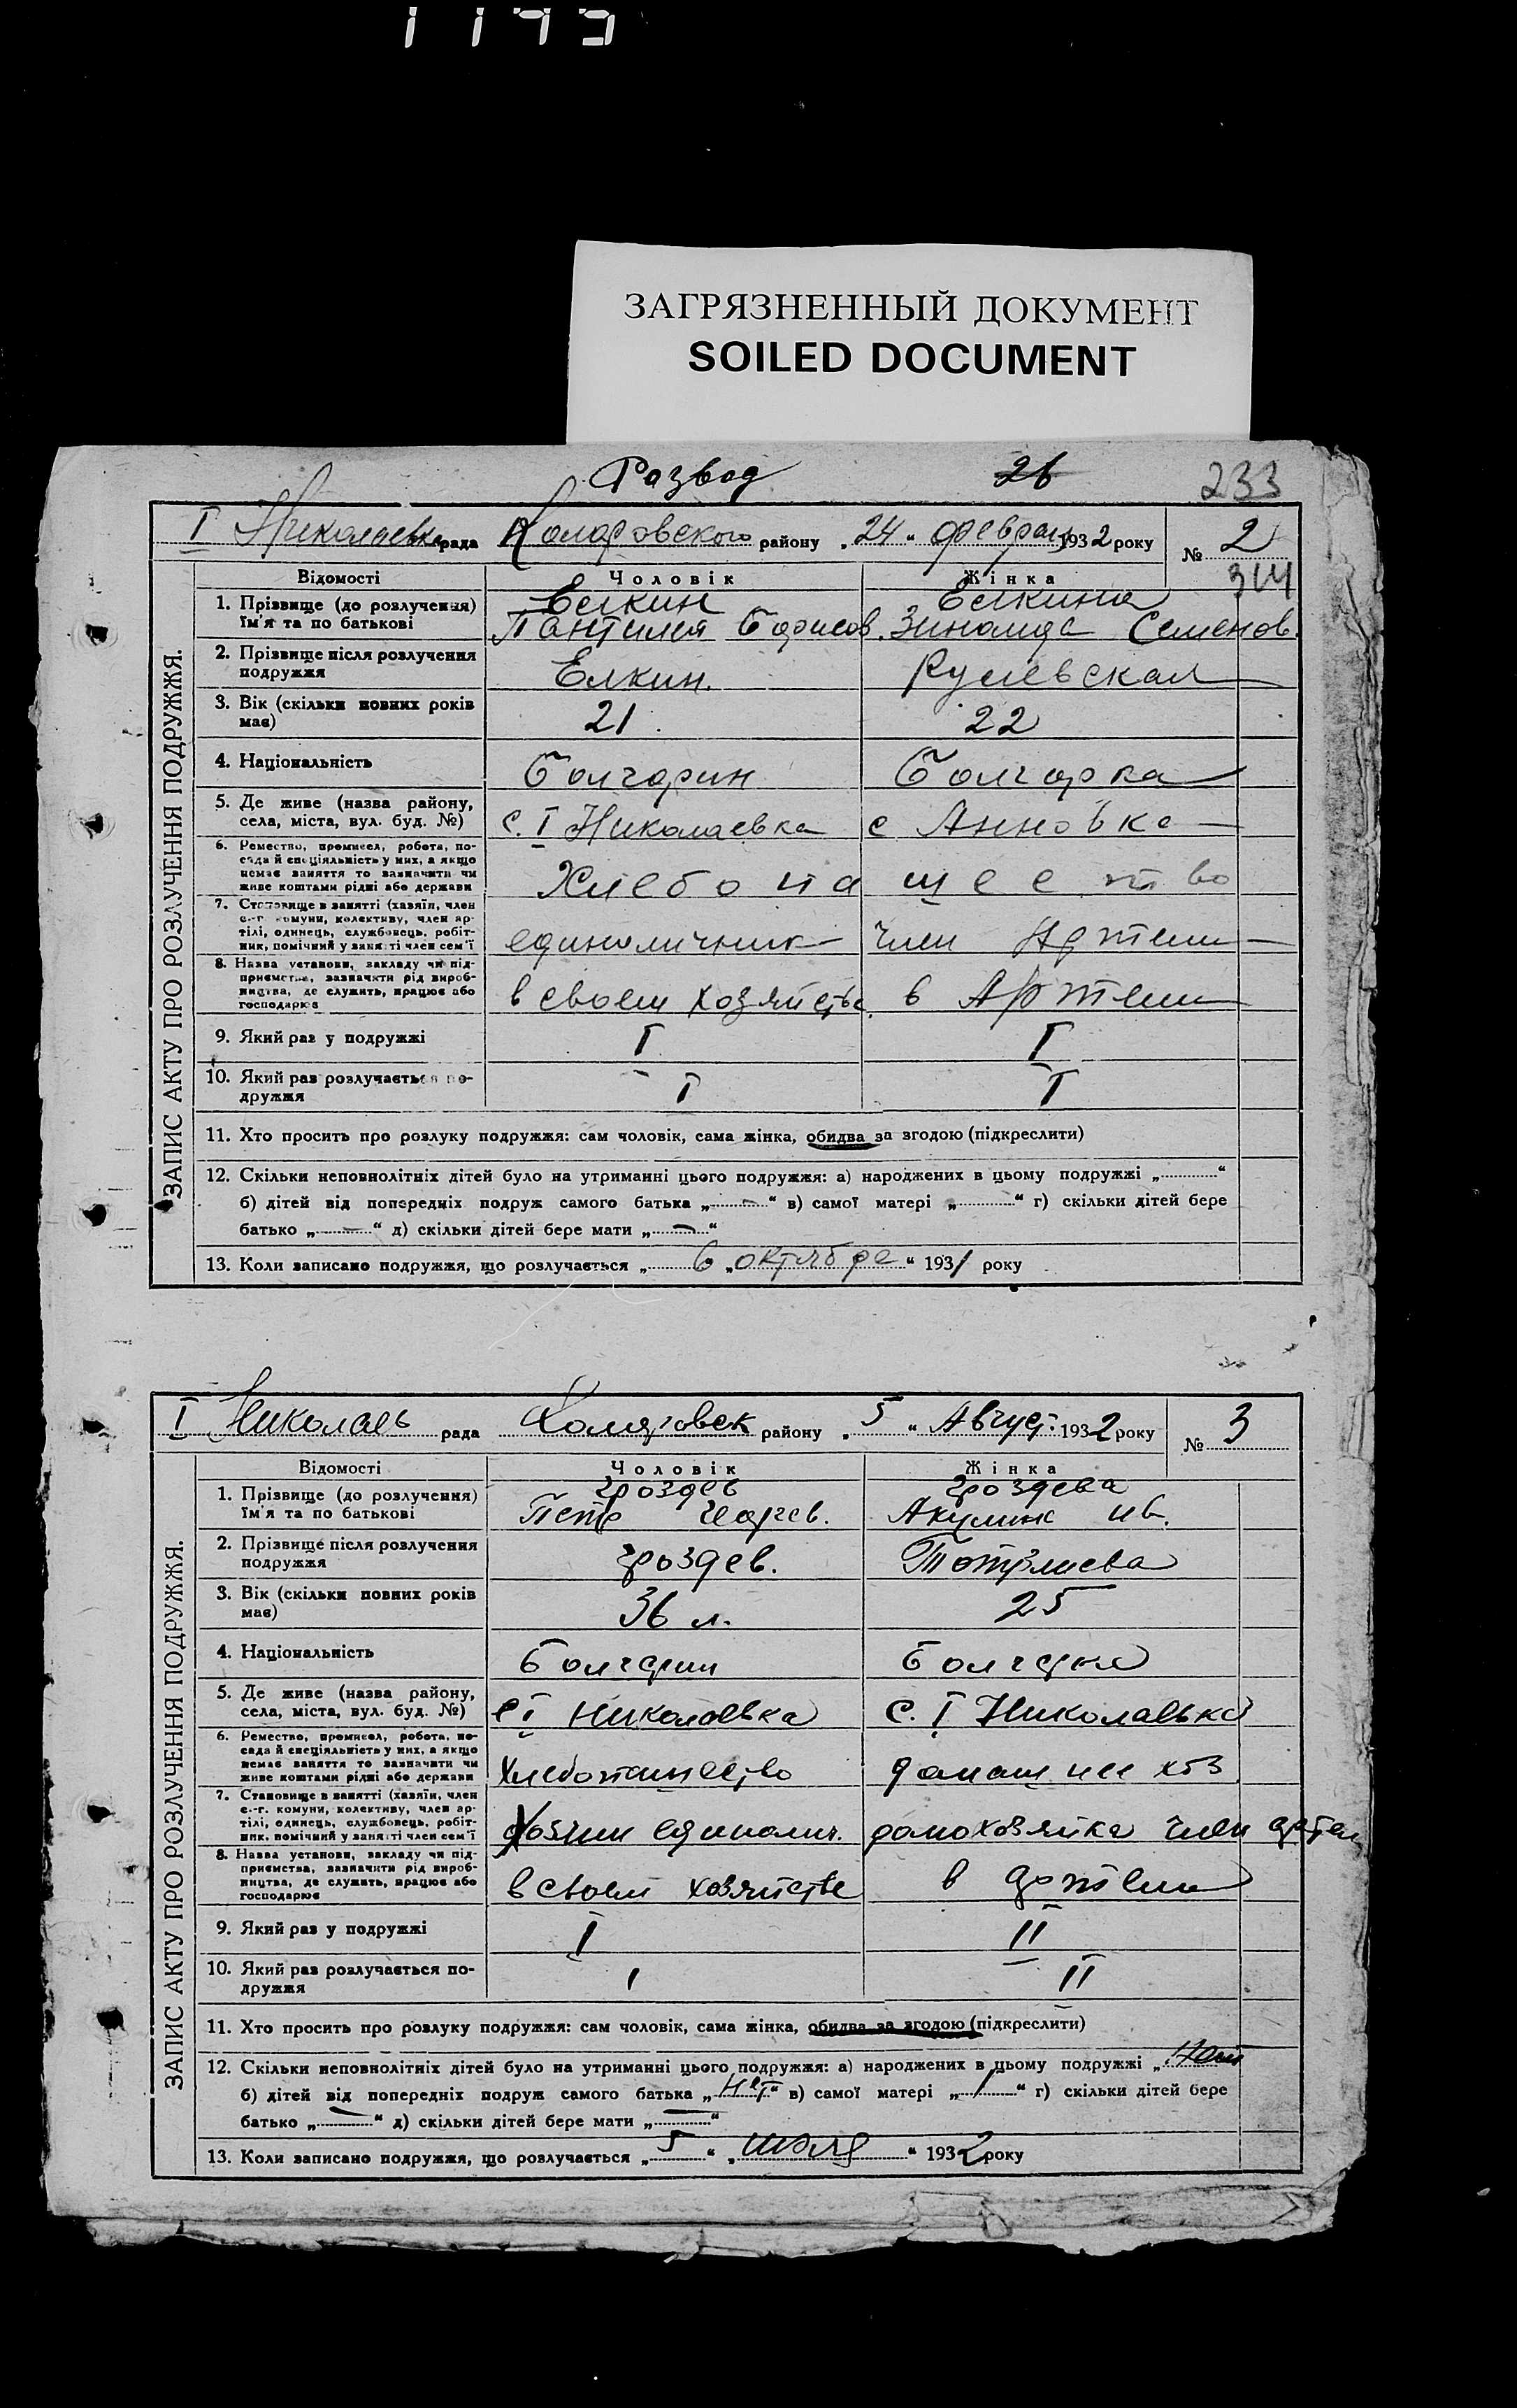 ЗАГРЯЗНЕННЫЙ ДОКУМЕНТ
SOILED DOCUMENT
Развод 26 233
I Николаевка рада Коларовского району „24“ феврал 1932 року № 2
314
ЗАПИС АКТУ ПРО РОЗЛУЧЕННЯ ПОДРУЖЖЯ.
Відомості Чоловік Жінка
Елкин Елкина
1. Прізвище (до розлучення)
ім'я та по батькові Пантилей Борисов. Зинаида Семенов.
2. Прізвище після розлучення
подружжя Елкин. Рулевская
3. Вік (скільки повних років
має) 21. 22
4. Національність Болгарин Болгарка
5. Де живе (назва району,
села, міста, вул. буд. №) с. I Николаевка с Анновка
6. Ремество, промисел, робота, по-
сада й спеціяльність у них, а якщо
немає заняття то зазначити чи
живе коштами рідні або держави Хлебопашество
7. Становище в занятті (хазяїн, член
с.-г. комуни, колективу, член ар-
тілі, одинець, службовець, робіт-
ник, помічний у занятті член сем'ї единоличник член Артели
8. Назва установи, закладу чи під-
приємства, зазначити рід вироб-
ництва, де служить, працює або
господарює в своем хозяйстве в Артели
9. Який раз у подружжі I I
10. Який раз розлучається по-
дружжя I I
11. Хто просить про розлуку подружжя: сам чоловік, сама жінка, обидва за згодою (підкреслити)
12. Скільки неповнолітніх дітей було на утриманні цього подружжя: а) народжених в цьому подружжі „ “
б) дітей від попередніх подруж самого батька „ — “ в) самої матері „ “ г) скільки дітей бере
батько „ — “ д) скільки дітей бере мати „ — “
13. Коли записано подружжя, що розлучається „ 6 „ октября “ 1931 року
I Николаев рада Коляровск району „5“ Август. 1932 року № 3
ЗАПИС АКТУ ПРО РОЗЛУЧЕННЯ ПОДРУЖЖЯ.
Відомості Чоловік Жінка
Гроздев Гроздева
1. Прізвище (до розлучення)
ім'я та по батькові Петр Акулина ив.
2. Прізвище після розлучення
подружжя Гроздев.
3. Вік (скільки повних років
має) 36 л. 25
4. Національність Болгарин Болгарка
5. Де живе (назва району,
села, міста, вул. буд. №) с I Николаевка с. I Николаевка
6. Ремество, промисел, робота, по-
сада й спеціяльність у них, а якщо
немає заняття то зазначити чи
живе коштами рідні або держави Хлебопашество домашнее хоз
7. Становище в занятті (хазяїн, член
с.-г. комуни, колективу, член ар-
тілі, одинець, службовець, робіт-
ник, помічний у занятті член сем'ї Хозяин единолич. домохозяйка член артели
8. Назва установи, закладу чи під-
приємства, зазначити рід вироб-
ництва, де служить, працює або
господарює в своем хозяйстве в артели
9. Який раз у подружжі I II
10. Який раз розлучається по-
дружжя I II
11. Хто просить про розлуку подружжя: сам чоловік, сама жінка, обидва за згодою (підкреслити)
12. Скільки неповнолітніх дітей було на утриманні цього подружжя: а) народжених в цьому подружжі „
б) дітей від попередніх подруж самого батька „ Нет “ в) самої матері „ 1 “ г) скільки дітей бере
батько „ — “ д) скільки дітей бере мати „ — “
13. Коли записано подружжя, що розлучається „ 5 “ „ “ 1932 року